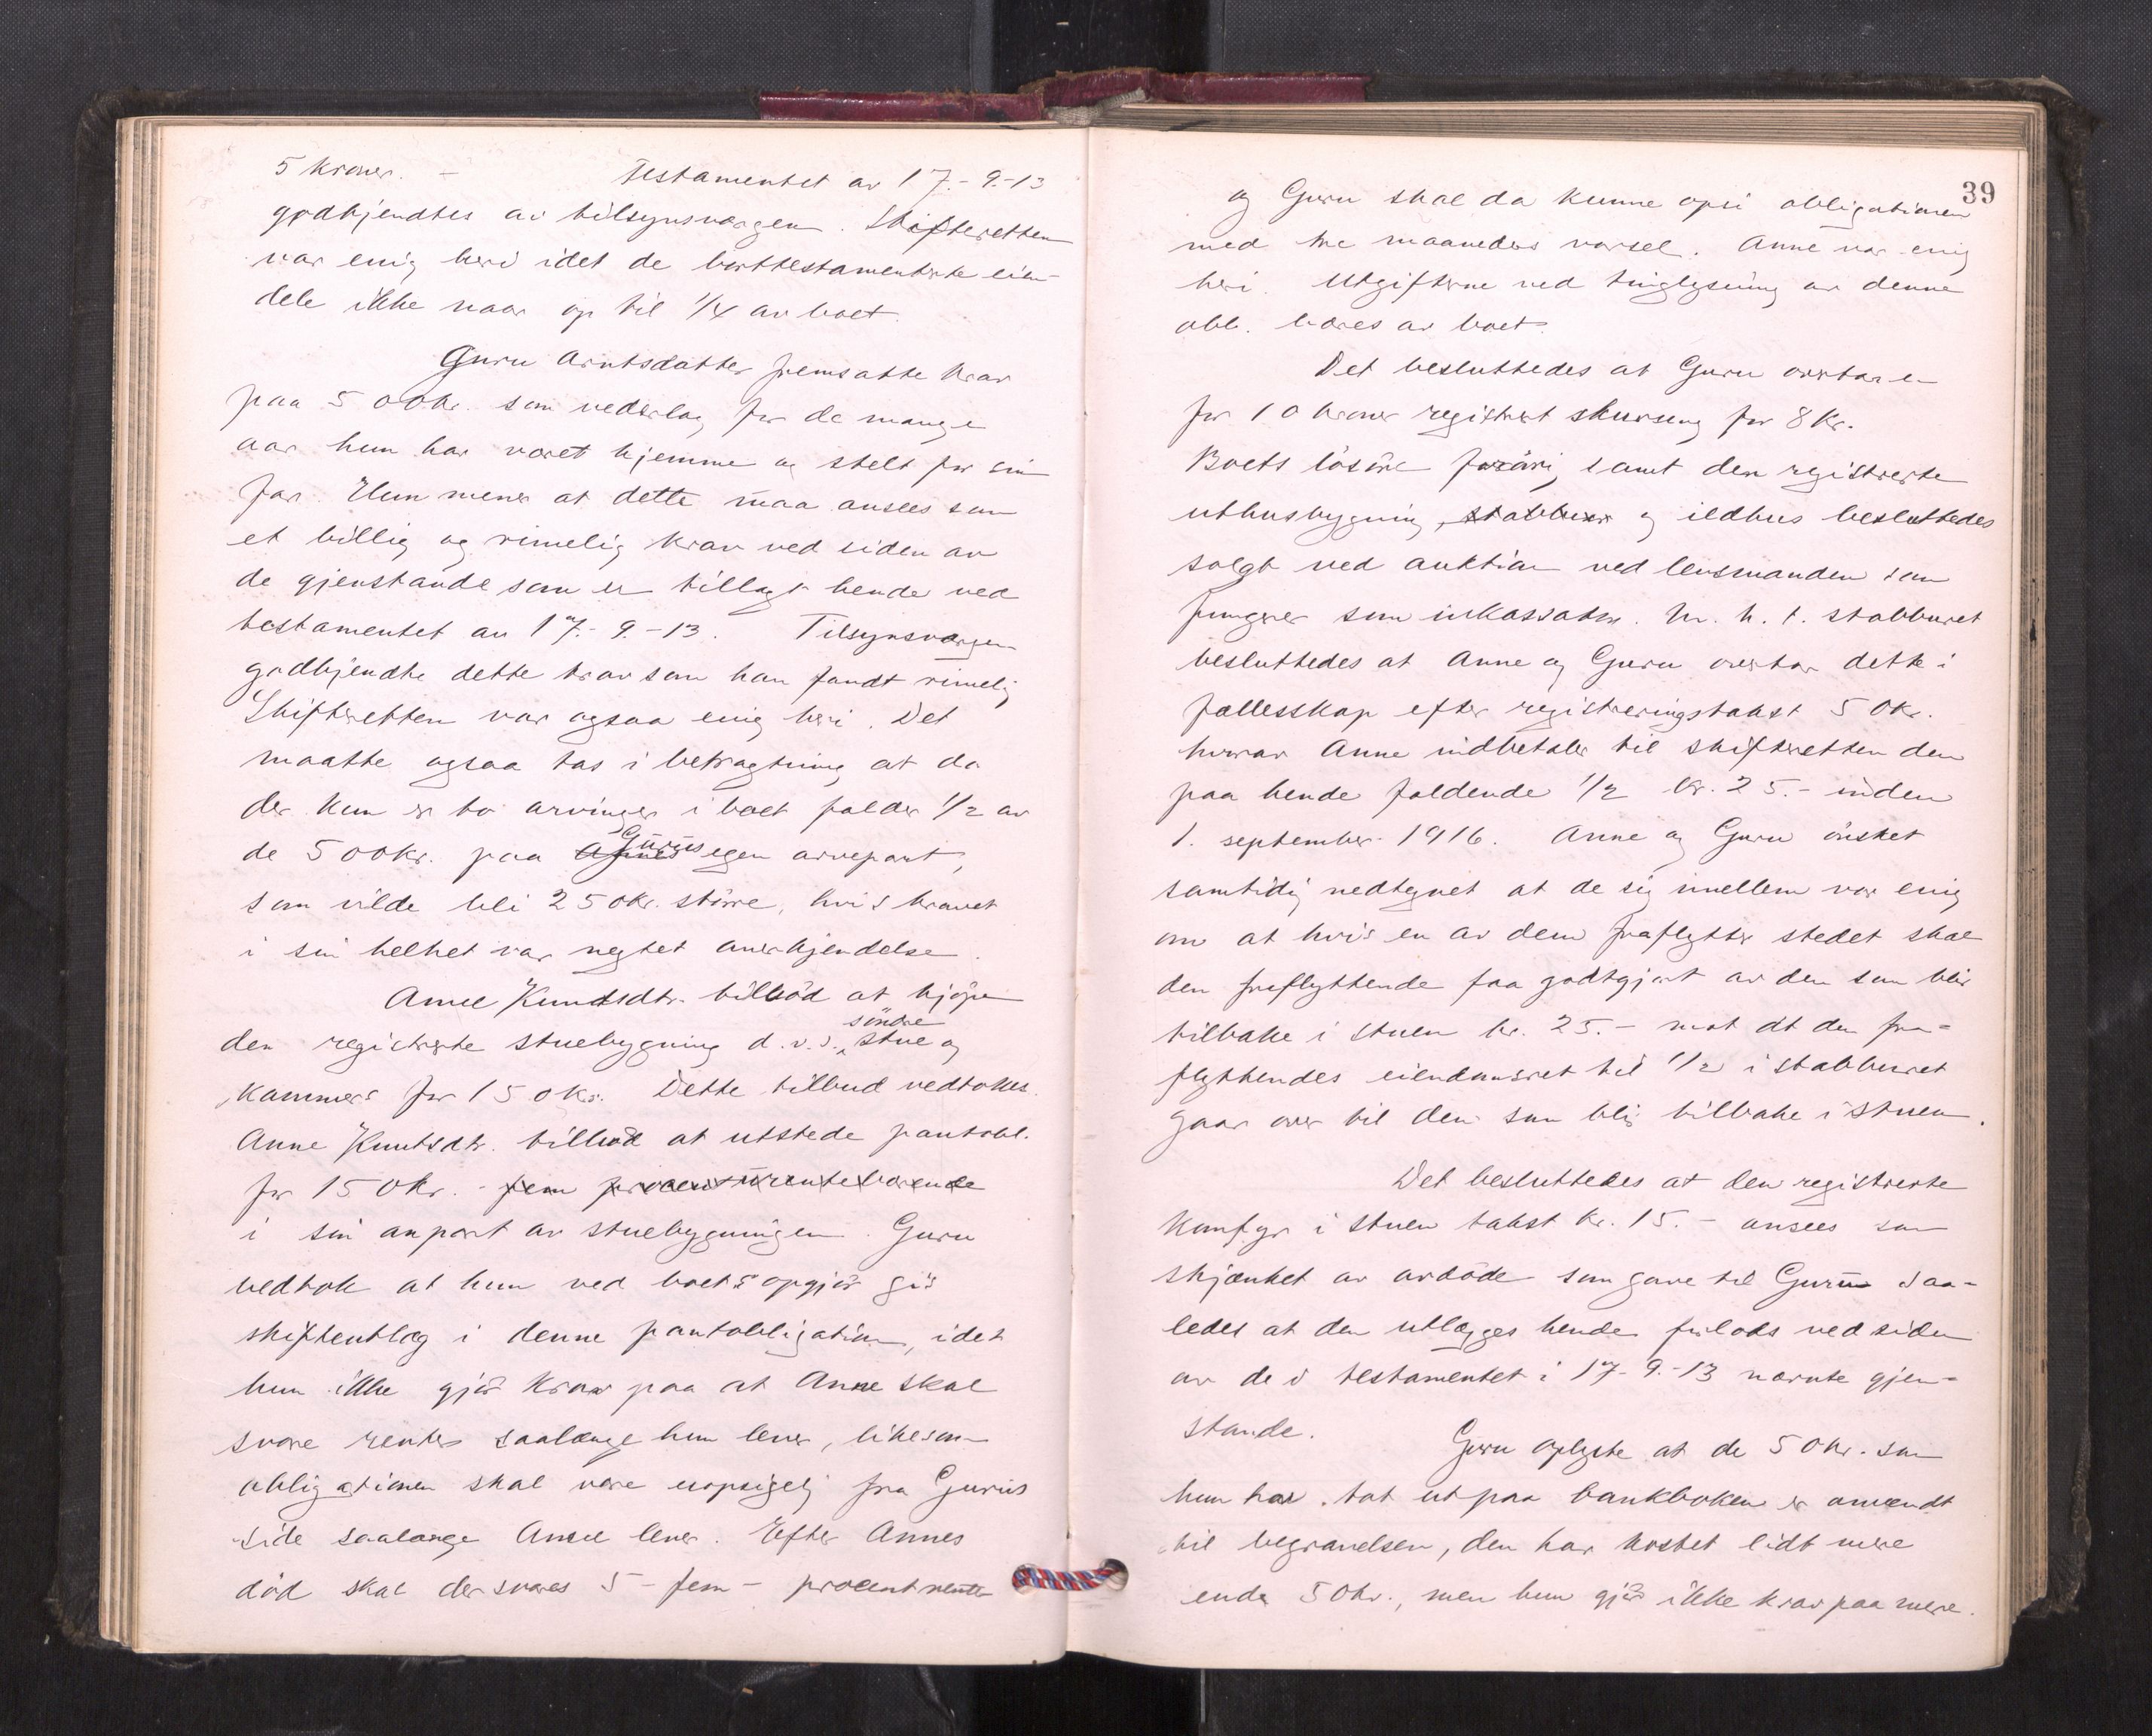 5 kroner. - Testamentet av 17.-9.-13
godkjendtes av tilsynsværgen. Skifteretten
var enig heri idet de borttestamenterte eien-
dele ikke naar op til 1/4 av boet.
Guru Arntsdatter fremsatte krav
paa 500 kr. som vederlag for de mange
aar hun har været hjemme og stelt for sin
far. Hun mener at dette maa ansees som
et billig og rimelig krav ved siden av
de gjenstande som er tillagt hende ved
testamentet av 17.-9.-13. Tilsynsværgen
godkjendte dette krav som han fandt rimelig
Skifteretten var ogsaa enig heri. Det
maatte ogsaa tas i betragtning at da
der kun er to arvinger i boet falder 1/2 av
de 500 kr. paa Gurus egen arvepart,
som vilde bli 250 kr. større, hvis kravet
i sin helhet var negtet anerkjendelse.
Anne Knudsdtr. tilbød at kjøpe
den registrerte stuebygning d.v.s. søndre stue og
kammers for 150 kr. Dette tilbud vedtokes.
Anne Knutsdtr. tilbød at utstede pantobl.
for 150 kr. - fem procent rentebærende
i sin anpart av stuebygningen. Guru
vedtok at hun ved boets opgjør gis
skifteutlæg i denne pantobligation, idet
hun ikke gjør krav paa at Anne skal
svare renter saalænge hun lever, likesom
obligationen skal være uopsigelig fra Gurus
side saalænge Anne lever. Efter Annes
død skal der svares 5 - fem - procent rente
39
og Guru skal da kunne opsi obligationen
med tre maaneders varsel. Anne var enig
heri. Utgifterne ved tinglysning av denne
obl. bæres av boet.
Det besluttedes at Guru overtar en
for 10 kroner registrert skurseng for 8 kr.
Boets løsøre forøvrig samt den registrerte
uthusbygning, stabbur og ildhus besluttedes
solgt ved auktion ved lensmanden som
fungerer som inkassator. M. h. t. stabburet
besluttedes at Anne og Guru overtar dette i
fællesskap efter registreringstakst 50 kr.
hvorav Anne indbetaler til skifteretten den
paa hende faldende 1/2 kr. 25.- inden
1. september 1916. Anne og Guru ønsket
samtidig nedtegnet at de sig imellem var enig
om at hvis en av dem fraflytter stedet skal
den fraflyttende faa godtgjort av den som blir
tilbake i stuen kr. 25.- mot at den fra-
flyttendes eiendomsret til 1/2 i stabburet
gaar over til den som blir tilbake i stuen.
Det besluttedes at den registrerte
komfyr i stuen takst kr. 15.- ansees som
skjænket av avdøde som gave til Guru saa-
ledes at den utlægges hende forlods ved siden
av de i testamentet i 17-9.-13 nævnte gjen-
stande. Guru oplyste at de 50 kr. som
hun har tat ut paa bankboken er anvendt
til begravelsen, den har kostet lidt mere
enda 50 kr., men hun gjør ikke krav paa mere.